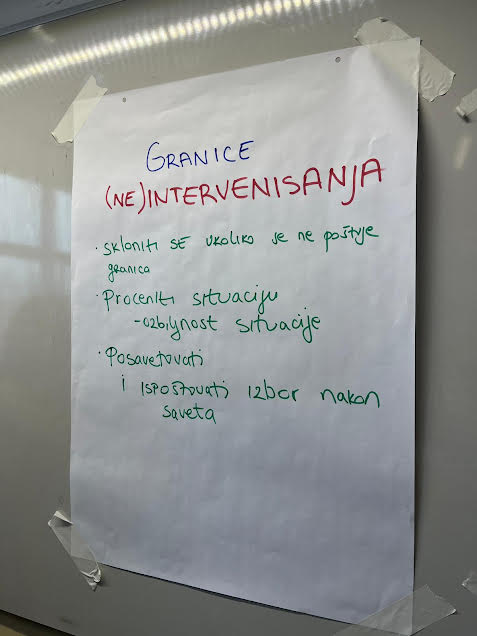 GRANICE
(NE)INTERVENISANJA
· SKLONITI SE UKOLIKO SE NE POŠTUJE
granica
· PROCENITI SITUACIJU
- OZBILJNOST SITUACIJE
· POSAVETOVATI
i ISPOŠTOVATI IZBOR NAKON
SAVETA